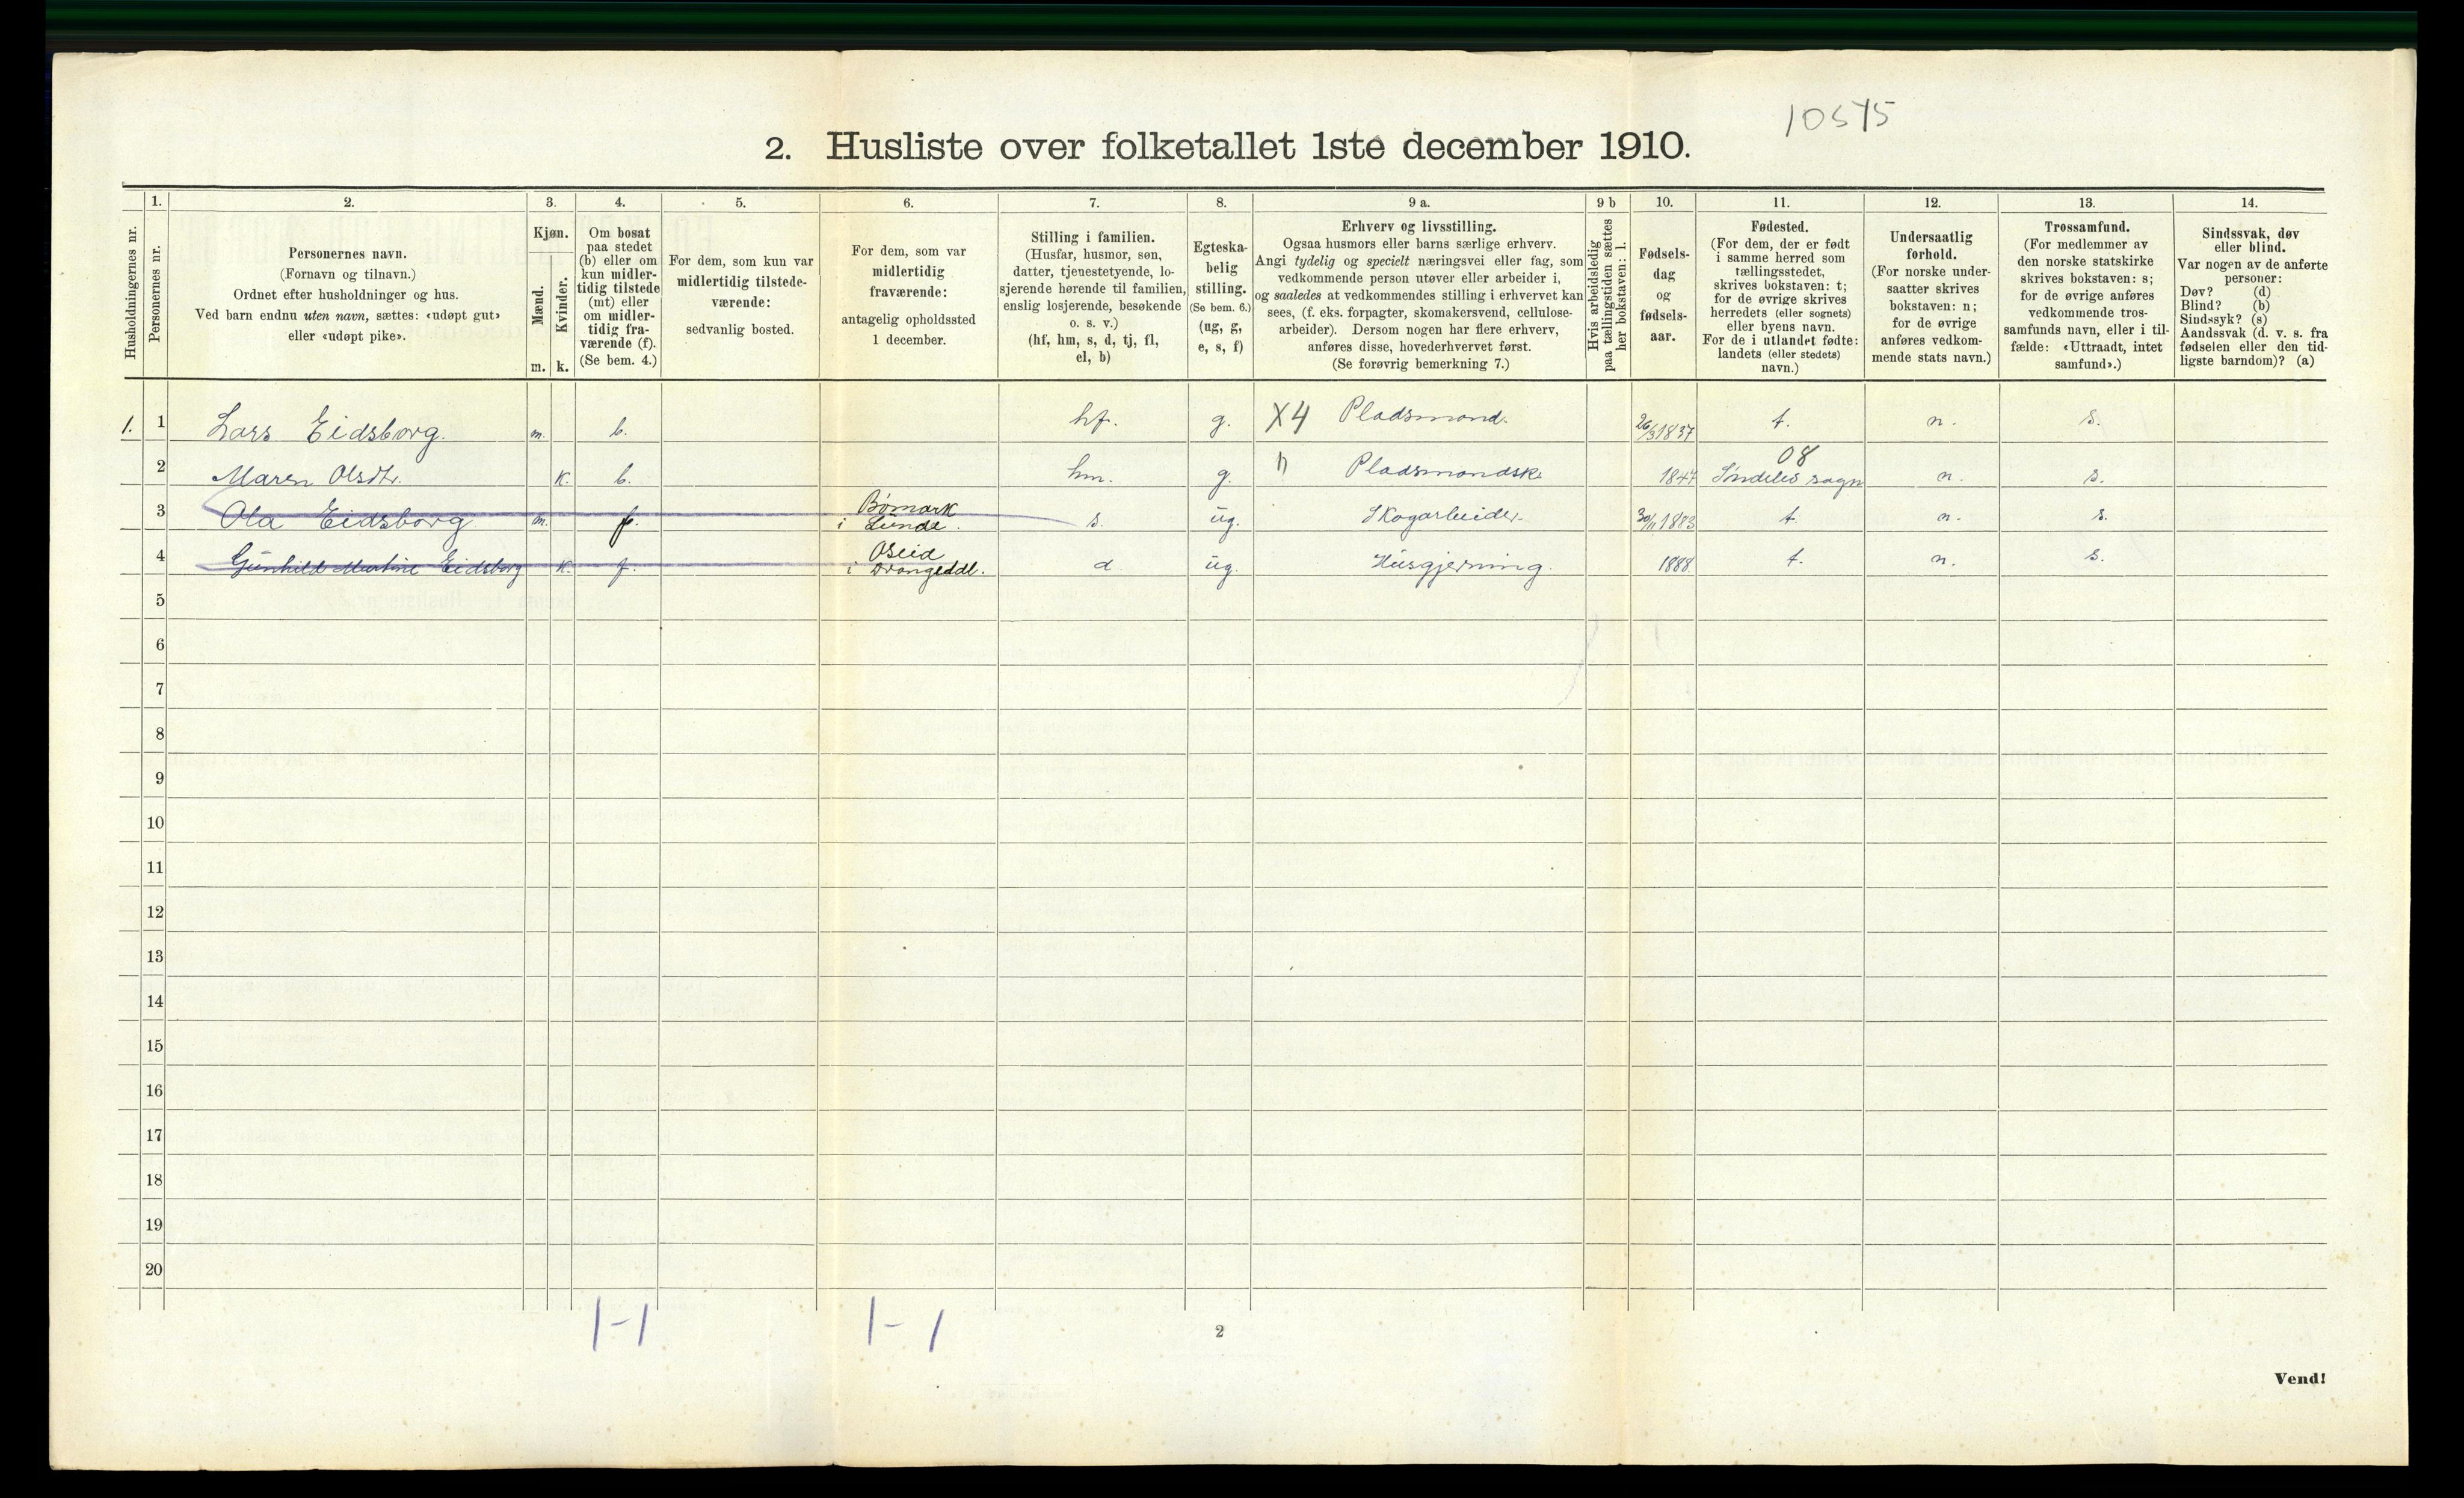 10575
2. Husliste over folketallet 1ste december 1910.
1. 2. 3. 4. 5. 6. 7. 8. 9 a. 9 b 10. 11. 12. 13. 14.
Husholdningernes nr.
Personernes nr.
Personernes navn.
(Fornavn og tilnavn.)
Ordnet efter husholdninger og hus.
Ved barn endnu uten navn, sættes: «udøpt gut»
eller «udøpt pike».
Kjøn.
Mænd.
Kvinder.
m. k.
Om bosat
paa stedet
(b) eller om
kun midler-
tidig tilstede
(mt) eller
om midler-
tidig fra-
værende (f).
(Se bem. 4.)
For dem, som kun var
midlertidig tilstede-
værende:
sedvanlig bosted.
For dem, som var
midlertidig
fraværende:
antagelig opholdssted
1 december.
Stilling i familien.
(Husfar, husmor, søn,
datter, tjenestetyende, lo-
sjerende hørende til familien,
enslig losjerende, besøkende
o. s. v.)
(hf, hm, s, d, tj, fl,
el, b)
Egteska-
belig
stilling.
(Se bem. 6.)
(ug, g,
e, s, f)
Erhverv og livsstilling.
Ogsaa husmors eller barns særlige erhverv.
Angi tydelig og specielt næringsvei eller fag, som
vedkommende person utøver eller arbeider i,
og saaledes at vedkommendes stilling i erhvervet kan
sees, (f. eks. forpagter, skomakersvend, cellulose-
arbeider). Dersom nogen har flere erhverv,
anføres disse, hovederhvervet først.
(Se forøvrig bemerkning 7.)
Hvis arbeidsledig
paa tællingstiden sættes
her bokstaven: l.
Fødsels-
dag
og
fødsels-
aar.
Fødested.
(For dem, der er født
i samme herred som
tællingsstedet,
skrives bokstaven: t;
for de øvrige skrives
herredets (eller sognets)
eller byens navn.
For de i utlandet fødte:
landets (eller stedets)
navn.)
Undersaatlig
forhold.
(For norske under-
saatter skrives
bokstaven: n;
for de øvrige
anføres vedkom-
mende stats navn.)
Trossamfund.
(For medlemmer av
den norske statskirke
skrives bokstaven: s;
for de øvrige anføres
vedkommende tros-
samfunds navn, eller i til-
fælde: «Uttraadt, intet
samfund».)
Sindssvak, døv
eller blind.
Var nogen av de anførte
personer:
Døv? (d)
Blind? (b)
Sindssyk? (s)
Aandssvak (d. v. s. fra
fødselen eller den tid-
ligste barndom)? (a)
1. 1 Lars Eidsborg. m. b. hf. g. X4 Pladsmand. 26/3 1837 t. n. s.
08
2 Maren Olsdtr. k. b. hm. g. " Pladsmandsk. 1847 Søndeles sogn n. s.
Bømark
3 Ola Eidsborg m. f. i Lunde. s. ug. Skogarbeider. 30/11 1883 t. n. s.
Øseid
4 Gunhild Martine Eidsborg k. f. i Drangedal. d ug. Husgjerning. 1888 t. n. s.
5
6
7
8
9
10
11
12
13
14
15
16
17
18
19
20
1-1 1-1
2
Vend!